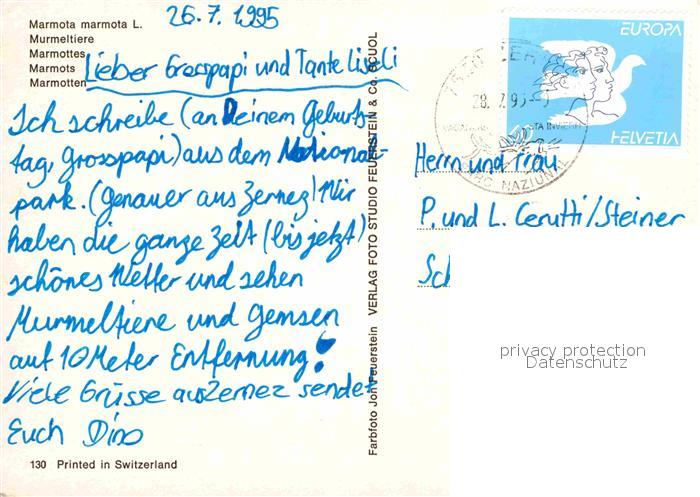 26.7.1995
Marmota marmota L.
Murmeltiere
Marmottes
Marmots
Marmotten
Lieber Grosspapi und Tante Liseli
Ich schreibe (an Deinem Geburts-
tag, grosspapi) aus dem National-
park. (genauer aus Zernez) Wir
haben die ganze Zeit (bis jetzt)
schönes Wetter und sehen
Murmeltiere und Gemsen
auf 10 Meter Entfernung!
Viele Grüsse aus Zernez sendet
Euch Dino
130 Printed in Switzerland
Farbfoto Jon Feuerstein VERLAG FOTO STUDIO FEUERSTEIN & Co. SCUOL
EUROPA
HELVETIA
28.7.95
NAZIUNAL
Herrn und Frau
P. und L. Cerutti/Steiner
Sch
privacy protection
Datenschutz